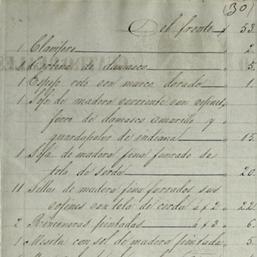 (30)
Del frente $ 33.
1 Clarifero 2.
1 Cortina de damasco 5.
1 Espejo roto con marco dorado 1.
1 Sofa de madera corriente con cojines
forro de damasco amarillo y
guardapolvo de indiana 15.
1 Sofa de madera fina forrado de
tela de serda 20.
11 Sillas de madera fina forradas sus
cojines con tela de cerda a $ 2 22.
2 Rinconeras pintadas a $ 3 6.
1 Mesita con sol de madera pintada 5.